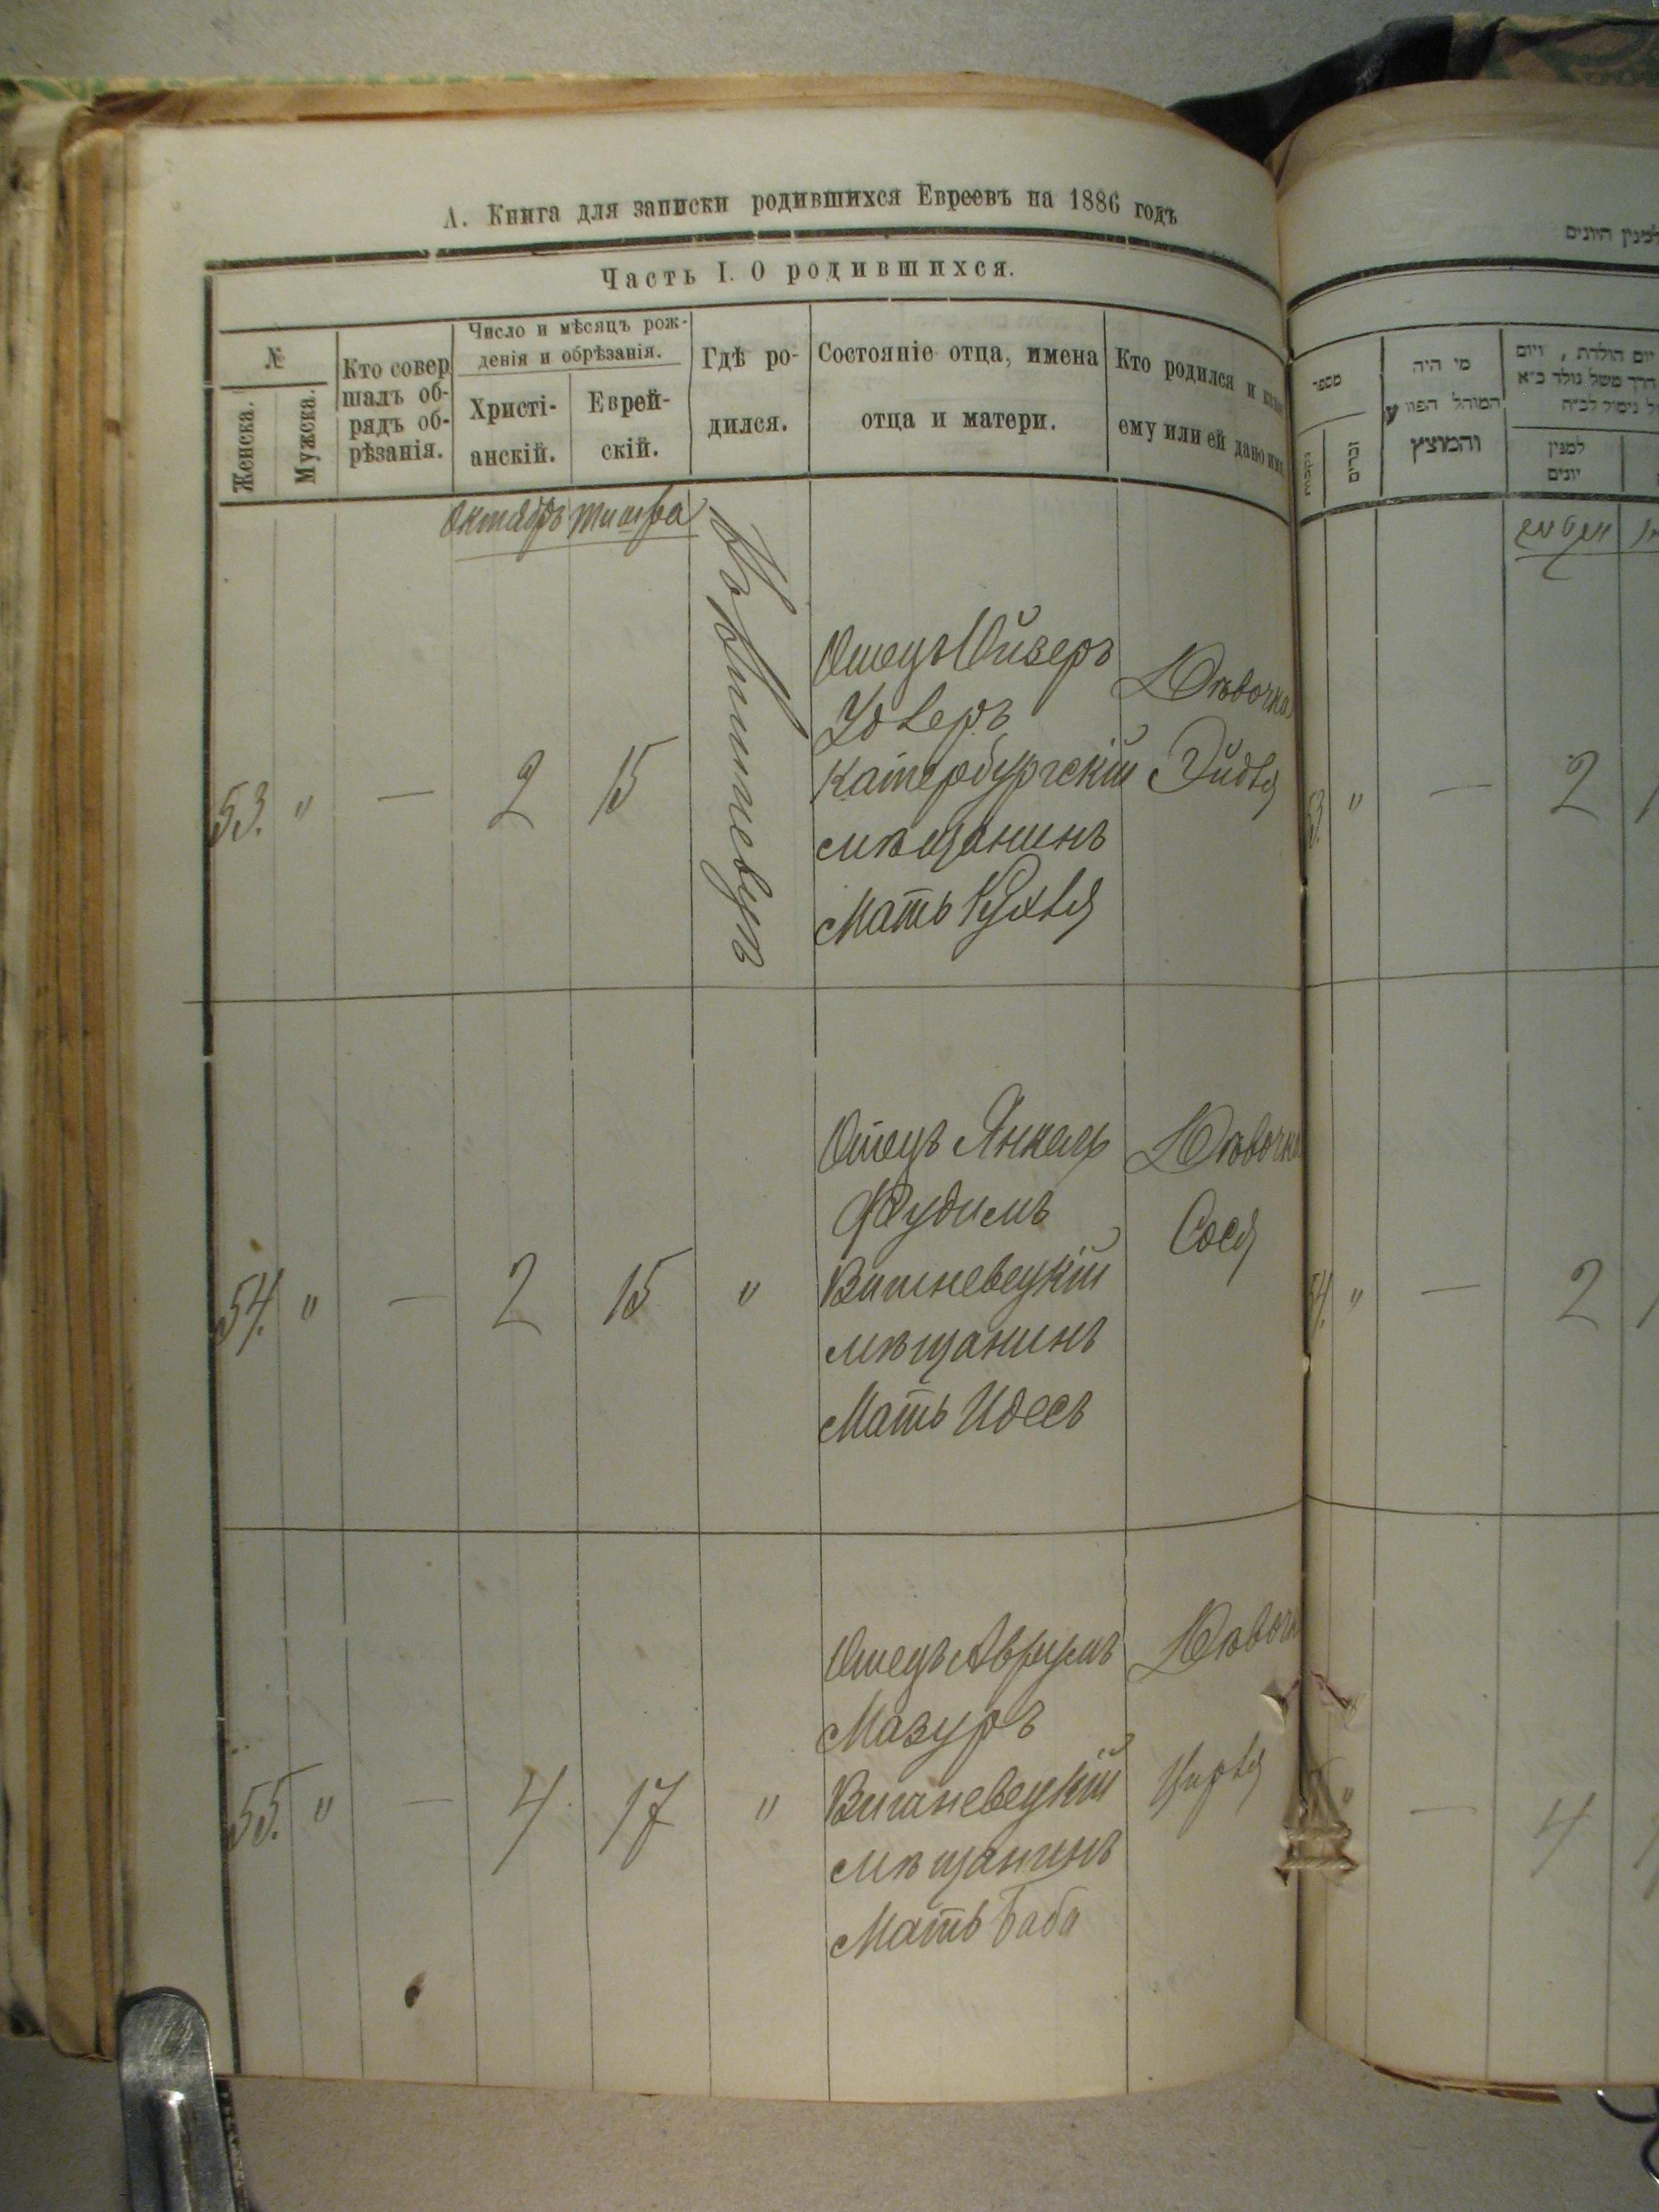 А. Книга для записки родившихся Евреевъ на 1886 годъ
Часть I. О родившихся.
№
Женска.
Мужска.
Кто совер
шалъ об-
рядъ об-
рѣзанія.
Число и мѣсяцъ рож-
денія и обрѣзанія.
Христі-
анскій.
Еврей-
скій.
Гдѣ ро-
дился.
Состояніе отца, имена
отца и матери.
Кто родился и
ему или ей дано
Октябрь Тишра
53. " — 2 15
Въ Вишневцѣ
Отецъ
Катербургскій
мѣщанинъ
Мать Рухля
Дѣвочка
Эйдля
54. " — 2 15 "
Отецъ Янкель
Фудимъ
Вишневецкій
мѣщанинъ
Мать Идесъ
Дѣвочка
Сося
55. " — 4 17 "
Отецъ Аврумъ
Мазуръ
Вишневецкій
мѣщанинъ
Мать Баба
Дѣвоч
Цирля
למנין היונים
מספר
נקבות
זכרים
מי היה
המוהל הפורע
והמוצץ
יום הולדת , ויום
למנין
יונים
53. " — 2
54. " — 2
" — 4